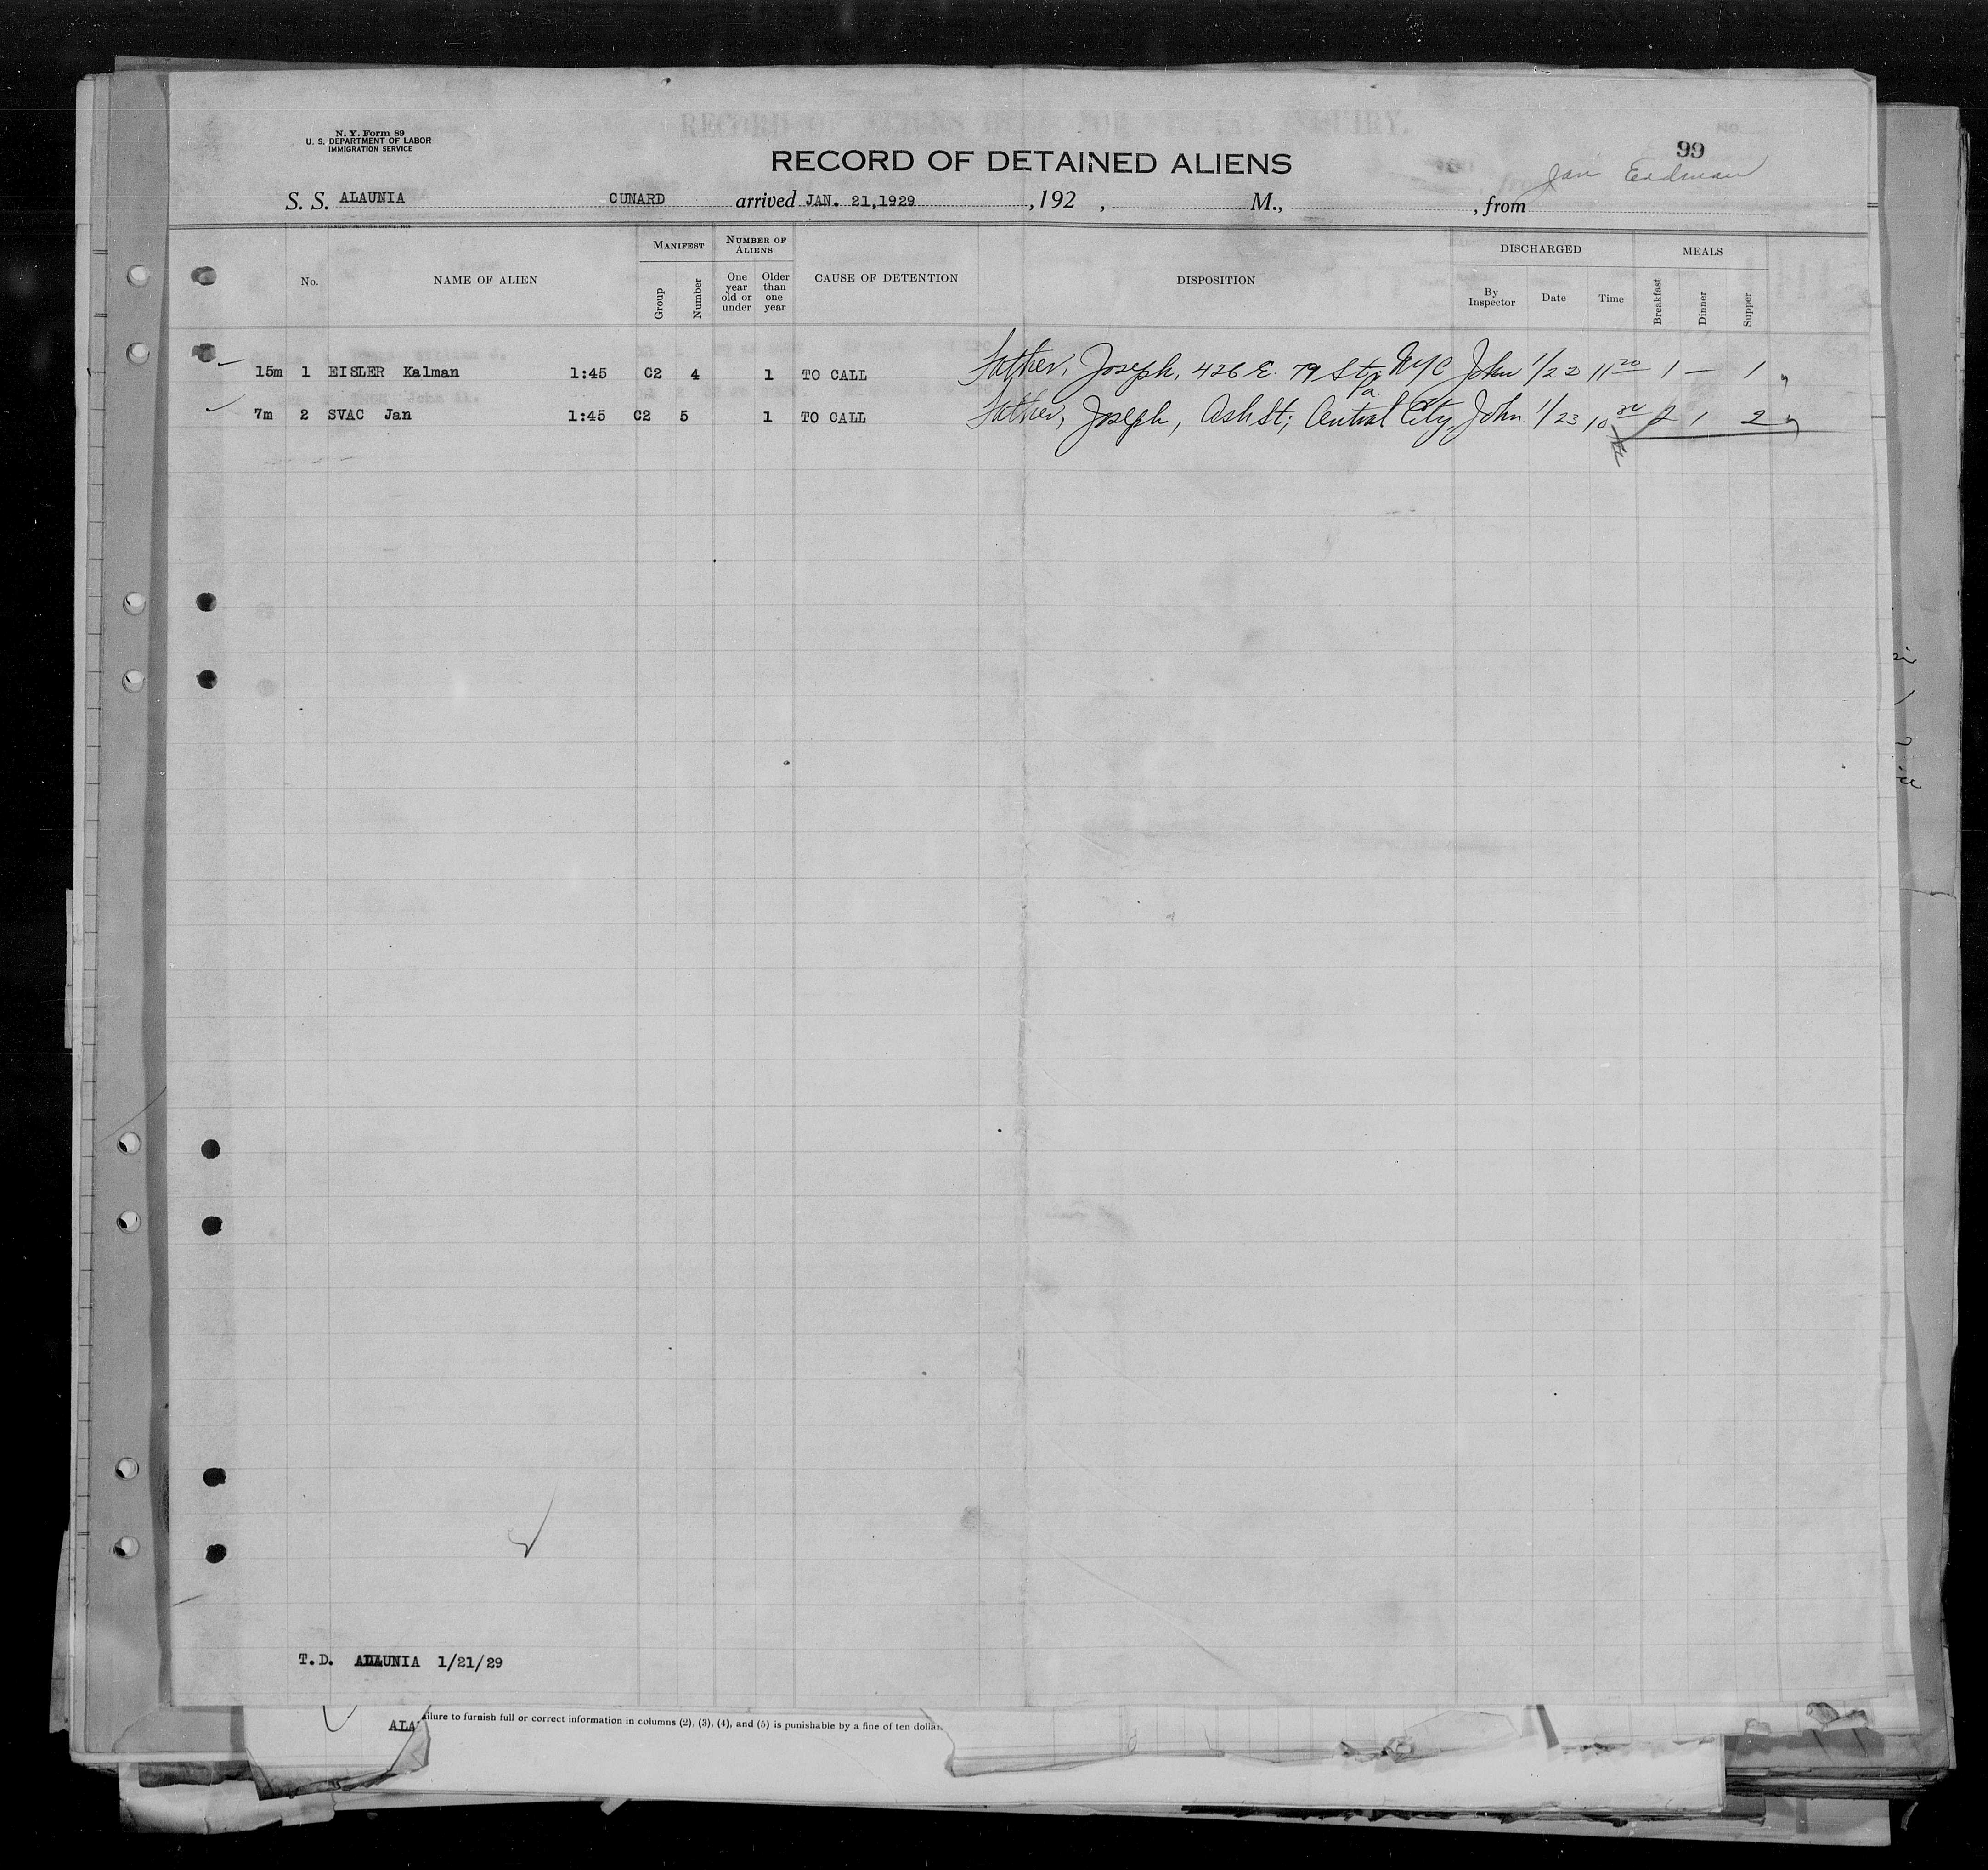 N. Y. Form 89
U. S. DEPARTMENT OF LABOR
IMMIGRATION SERVICE
99
RECORD OF DETAINED ALIENS
Jan Erdman
S. S. ALAUNIA CUNARD arrived JAN. 21,1929 , 192 , M., , from
No. NAME OF ALIEN MANIFEST Group Number NUMBER OF ALIENS One year old or under Older than one year CAUSE OF DETENTION DISPOSITION DISCHARGED By Inspector Date Time MEALS Breakfast Dinner Supper
15m 1 EISLER Kalman 1:45 C2 4 1 TO CALL Father, Joseph, 426 E. 79 St; NYC John 1/22 11 20 1 — 1
7m 2 SVAC Jan 1:45 C2 5 1 TO CALL Father, Joseph, Ash St; Central City, Pa. John 1/23 10 30 2 1 2
T.D. ALAUNIA 1/21/29
ALA
ailure to furnish full or correct information in columns (2), (3), (4), and (5) is punishable by a fine of ten dollar